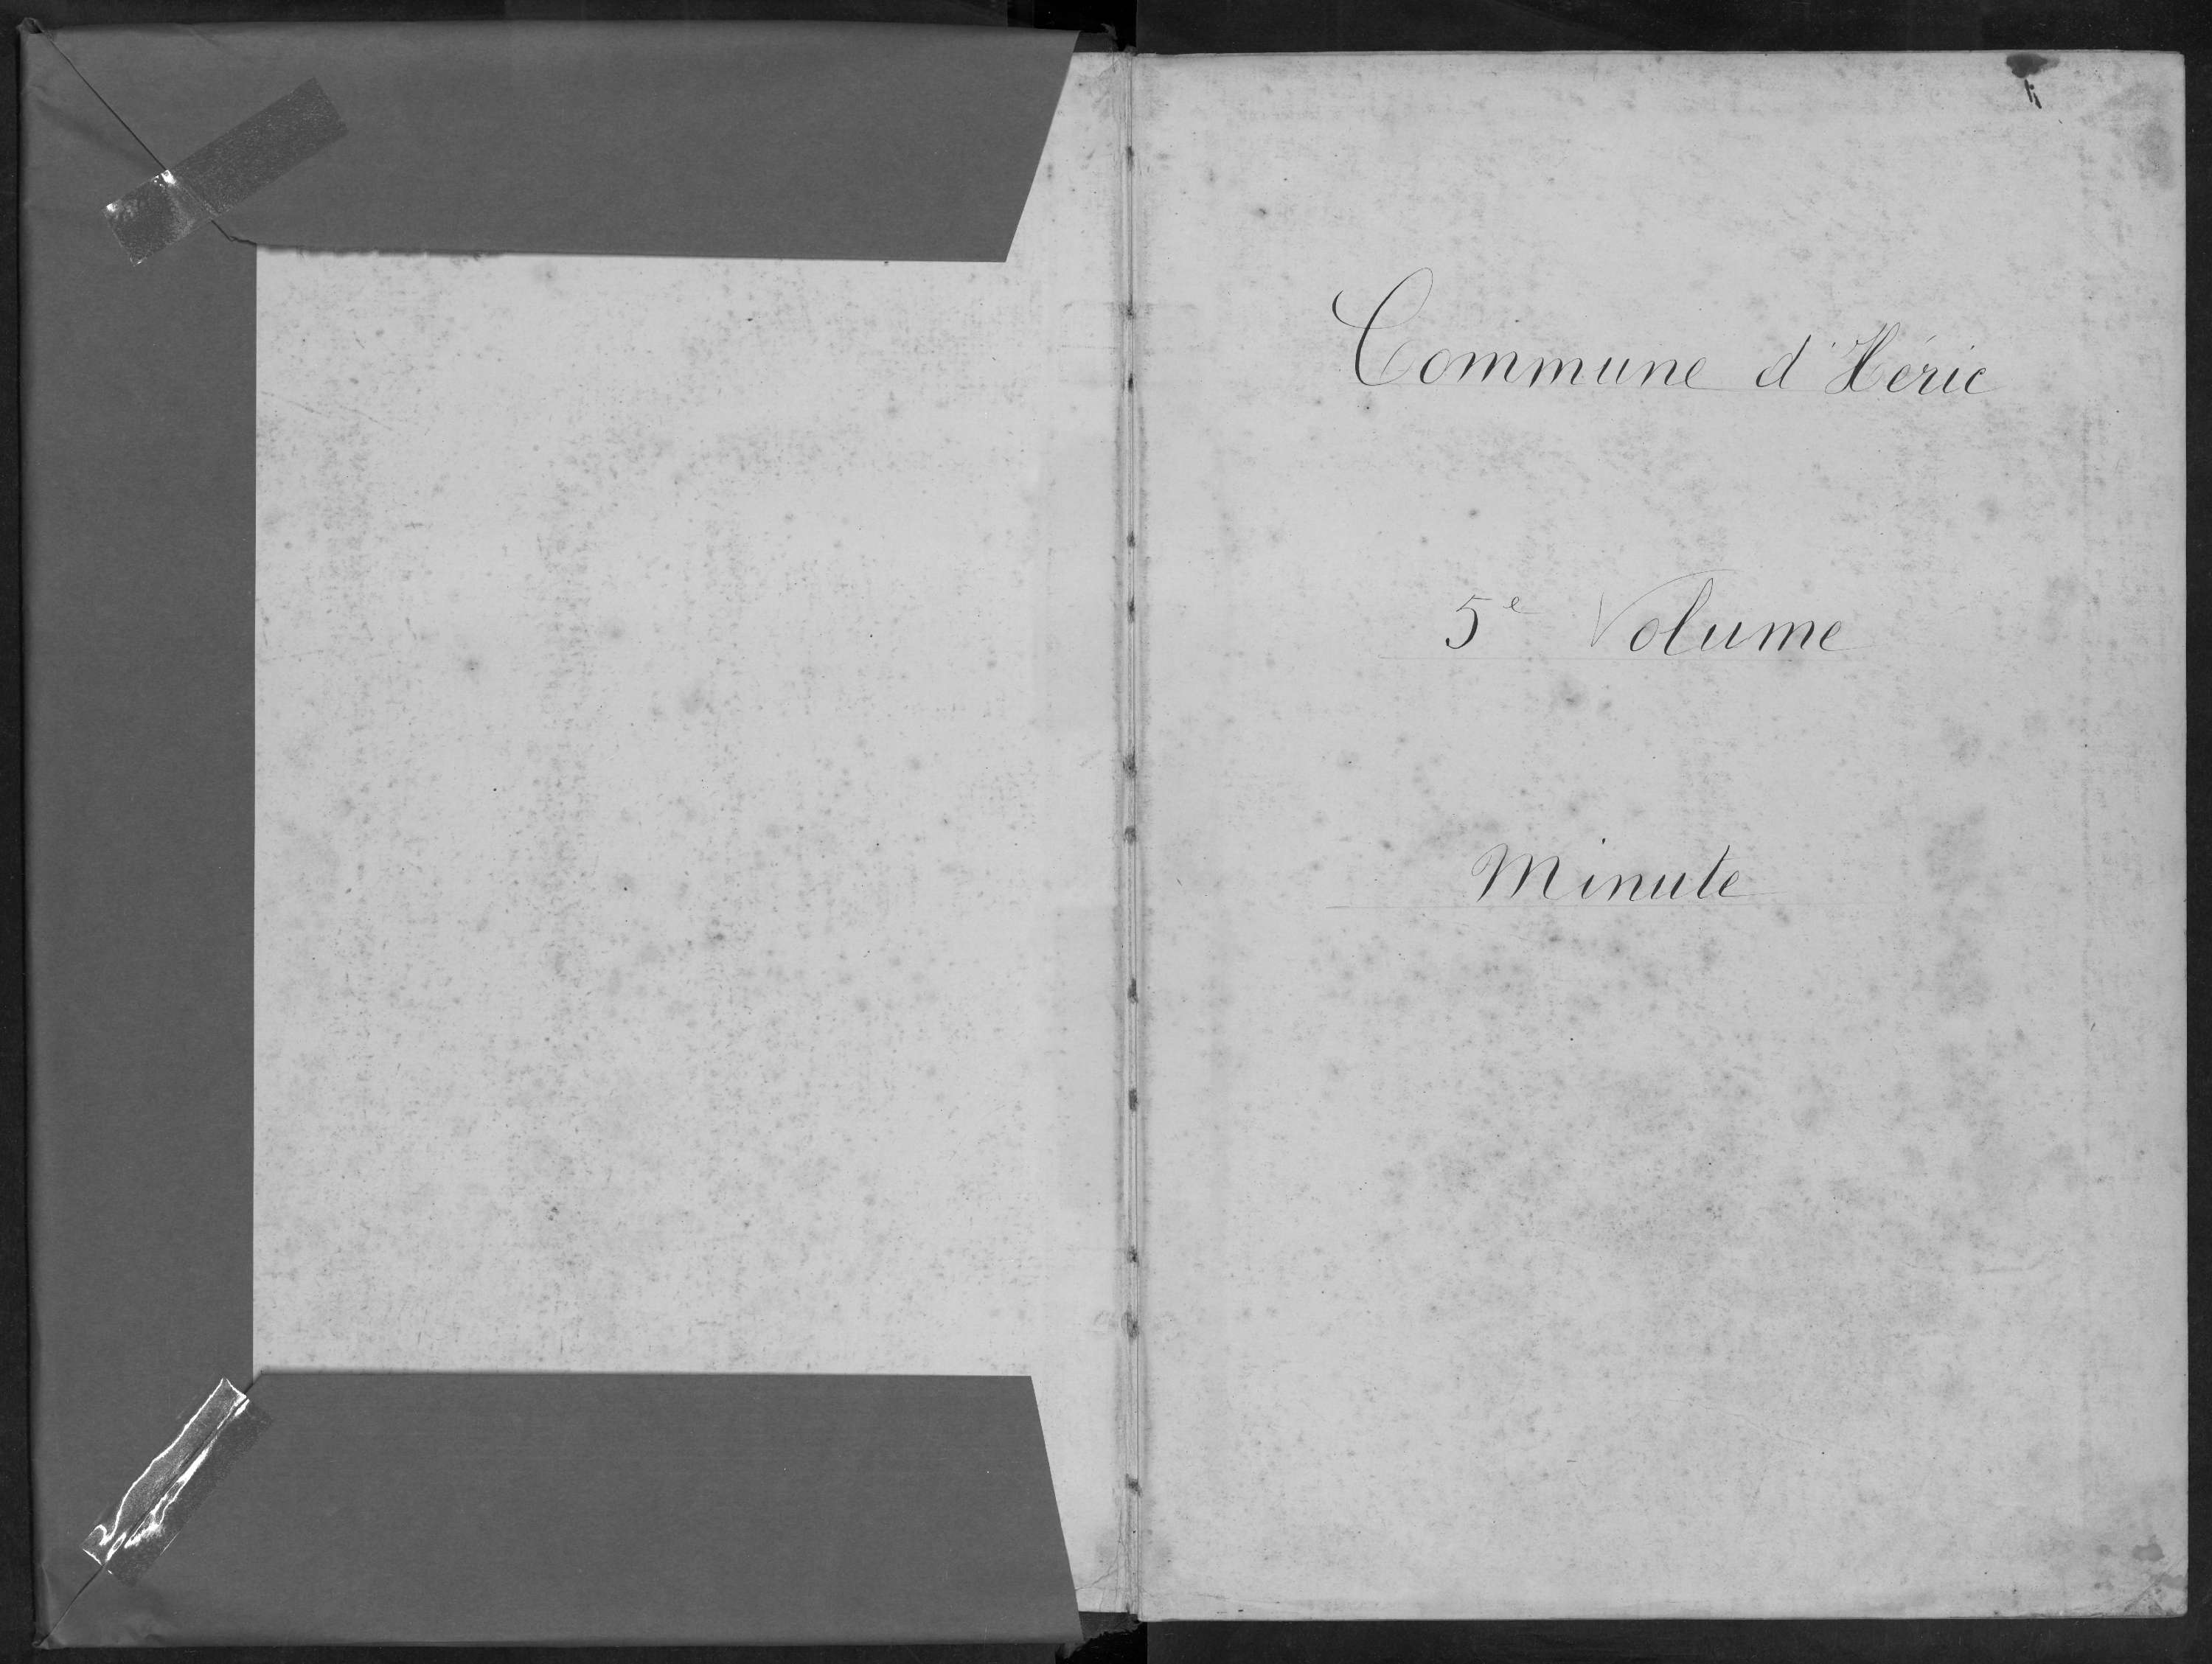 Commune d'Héric
5e Volume
Minute